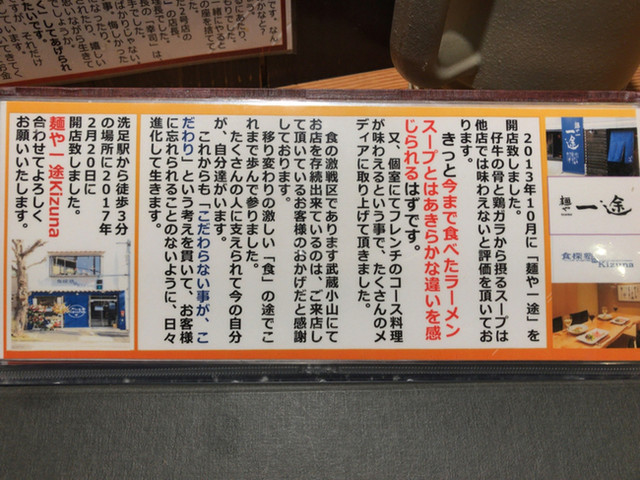 ２０１３年１０月に「麺や一途」を
開店致しました。
仔牛の骨と鶏ガラから摂るスープは
他店では味わえないと評価を頂いてお
ります。
きっと今まで食べたラーメン
スープとはあきらかな違いを感
じられるはずです。
又、個室にてフレンチのコース料理
が味わえるという事で、たくさんのメ
ディアに取り上げて頂きました。
食の激戦区であります武蔵小山にて
お店を存続出来ているのは、ご来店し
て頂いているお客様のおかげだと感謝
しております。
移り変わりの激しい「食」の途でこ
れまで歩んで参りました。
たくさんの人に支えられて今の自分
が、自分達がいます。
これからも「こだわらない事が、こ
だわり」という考えを貫いて、お客様
に忘れられることのないように、日々
進化して生きます。
洗足駅から徒歩３分
の場所に２０１７年
２月２０日に
開店致しました。
麺や一途Kizuna
合わせてよろしく
お願いいたします。
麺や 一途
食探求
Kizuna